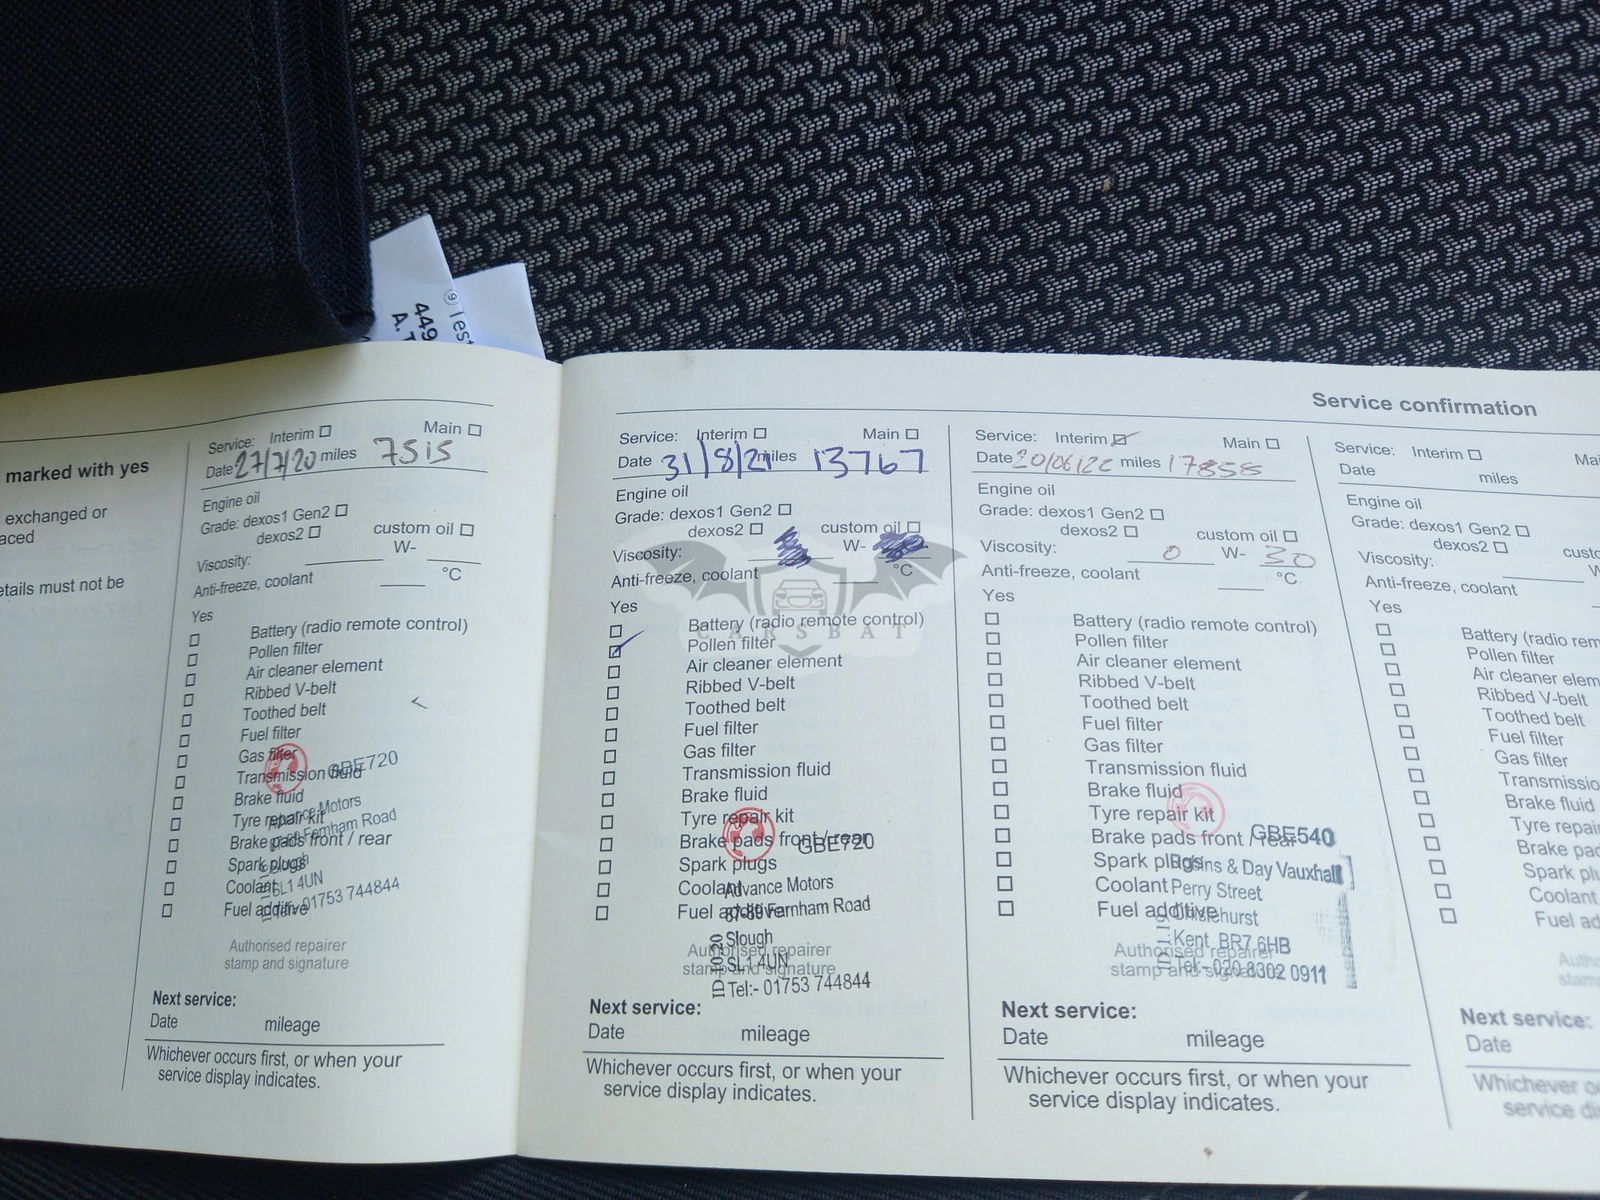 9) Test
449
A.T
marked with yes
exchanged or
aced
etails must not be
Service: Interim Main
Date 27/7/20 miles 7515
Engine oil
Grade: dexos1 Gen2
dexos2 custom oil
Viscosity: W-
Anti-freeze, coolant °C
Yes
Battery (radio remote control)
Pollen filter
Air cleaner element
Ribbed V-belt
Toothed belt
Fuel filter
Gas filter
Transmission fluid
GBE720
Brake fluid
Tyre repair kit
Motors
Farnham Road
Brake pads front / rear
Spark plugs
Coolant
SL1 4UN
Fuel additive
01753 744844
Authorised repairer
stamp and signature
Next service:
Date mileage
Whichever occurs first, or when your
service display indicates.
Service confirmation
Service: Interim Main
Date 31/8/21 miles 13767
Engine oil
Grade: dexos1 Gen2
dexos2 custom oil
Viscosity: W-
Anti-freeze, coolant °C
Yes
Battery (radio remote control)
CARSBAT
Pollen filter
Air cleaner element
Ribbed V-belt
Toothed belt
Fuel filter
Gas filter
Transmission fluid
Brake fluid
Tyre repair kit
Brake pads front / rear
GBE720
Spark plugs
Coolant
Advance Motors
Fuel additive
87-89 Farnham Road
Slough
Authorised repairer
SL1 4UN
stamp and signature
Tel:- 01753 744844
Next service:
Date mileage
Whichever occurs first, or when your
service display indicates.
Service: Interim Main
Date 20/06/22 miles 17858
Engine oil
Grade: dexos1 Gen2
dexos2 custom oil
Viscosity: 0 W- 30
Anti-freeze, coolant °C
Yes
Battery (radio remote control)
Pollen filter
Air cleaner element
Ribbed V-belt
Toothed belt
Fuel filter
Gas filter
Transmission fluid
Brake fluid
Tyre repair kit
Brake pads front / rear
GBE540
Spark plugs
Robins & Day Vauxhall
Coolant
Perry Street
Fuel additive
Chislehurst
Kent BR7 6HB
Authorised repairer
stamp and signature
Tel:- 020 8302 0911
Next service:
Date mileage
Whichever occurs first, or when your
service display indicates.
Service: Interim Mai
Date miles
Engine oil
Grade: dexos1 Gen2
dexos2 custo
Viscosity: W
Anti-freeze, coolant
Yes
Battery (radio rem
Pollen filter
Air cleaner elem
Ribbed V-belt
Toothed belt
Fuel filter
Gas filter
Transmissio
Brake fluid
Tyre repair
Brake pad
Spark plu
Coolant
Fuel ad
Autho
stam
Next service:
Date
Whichever o
service di